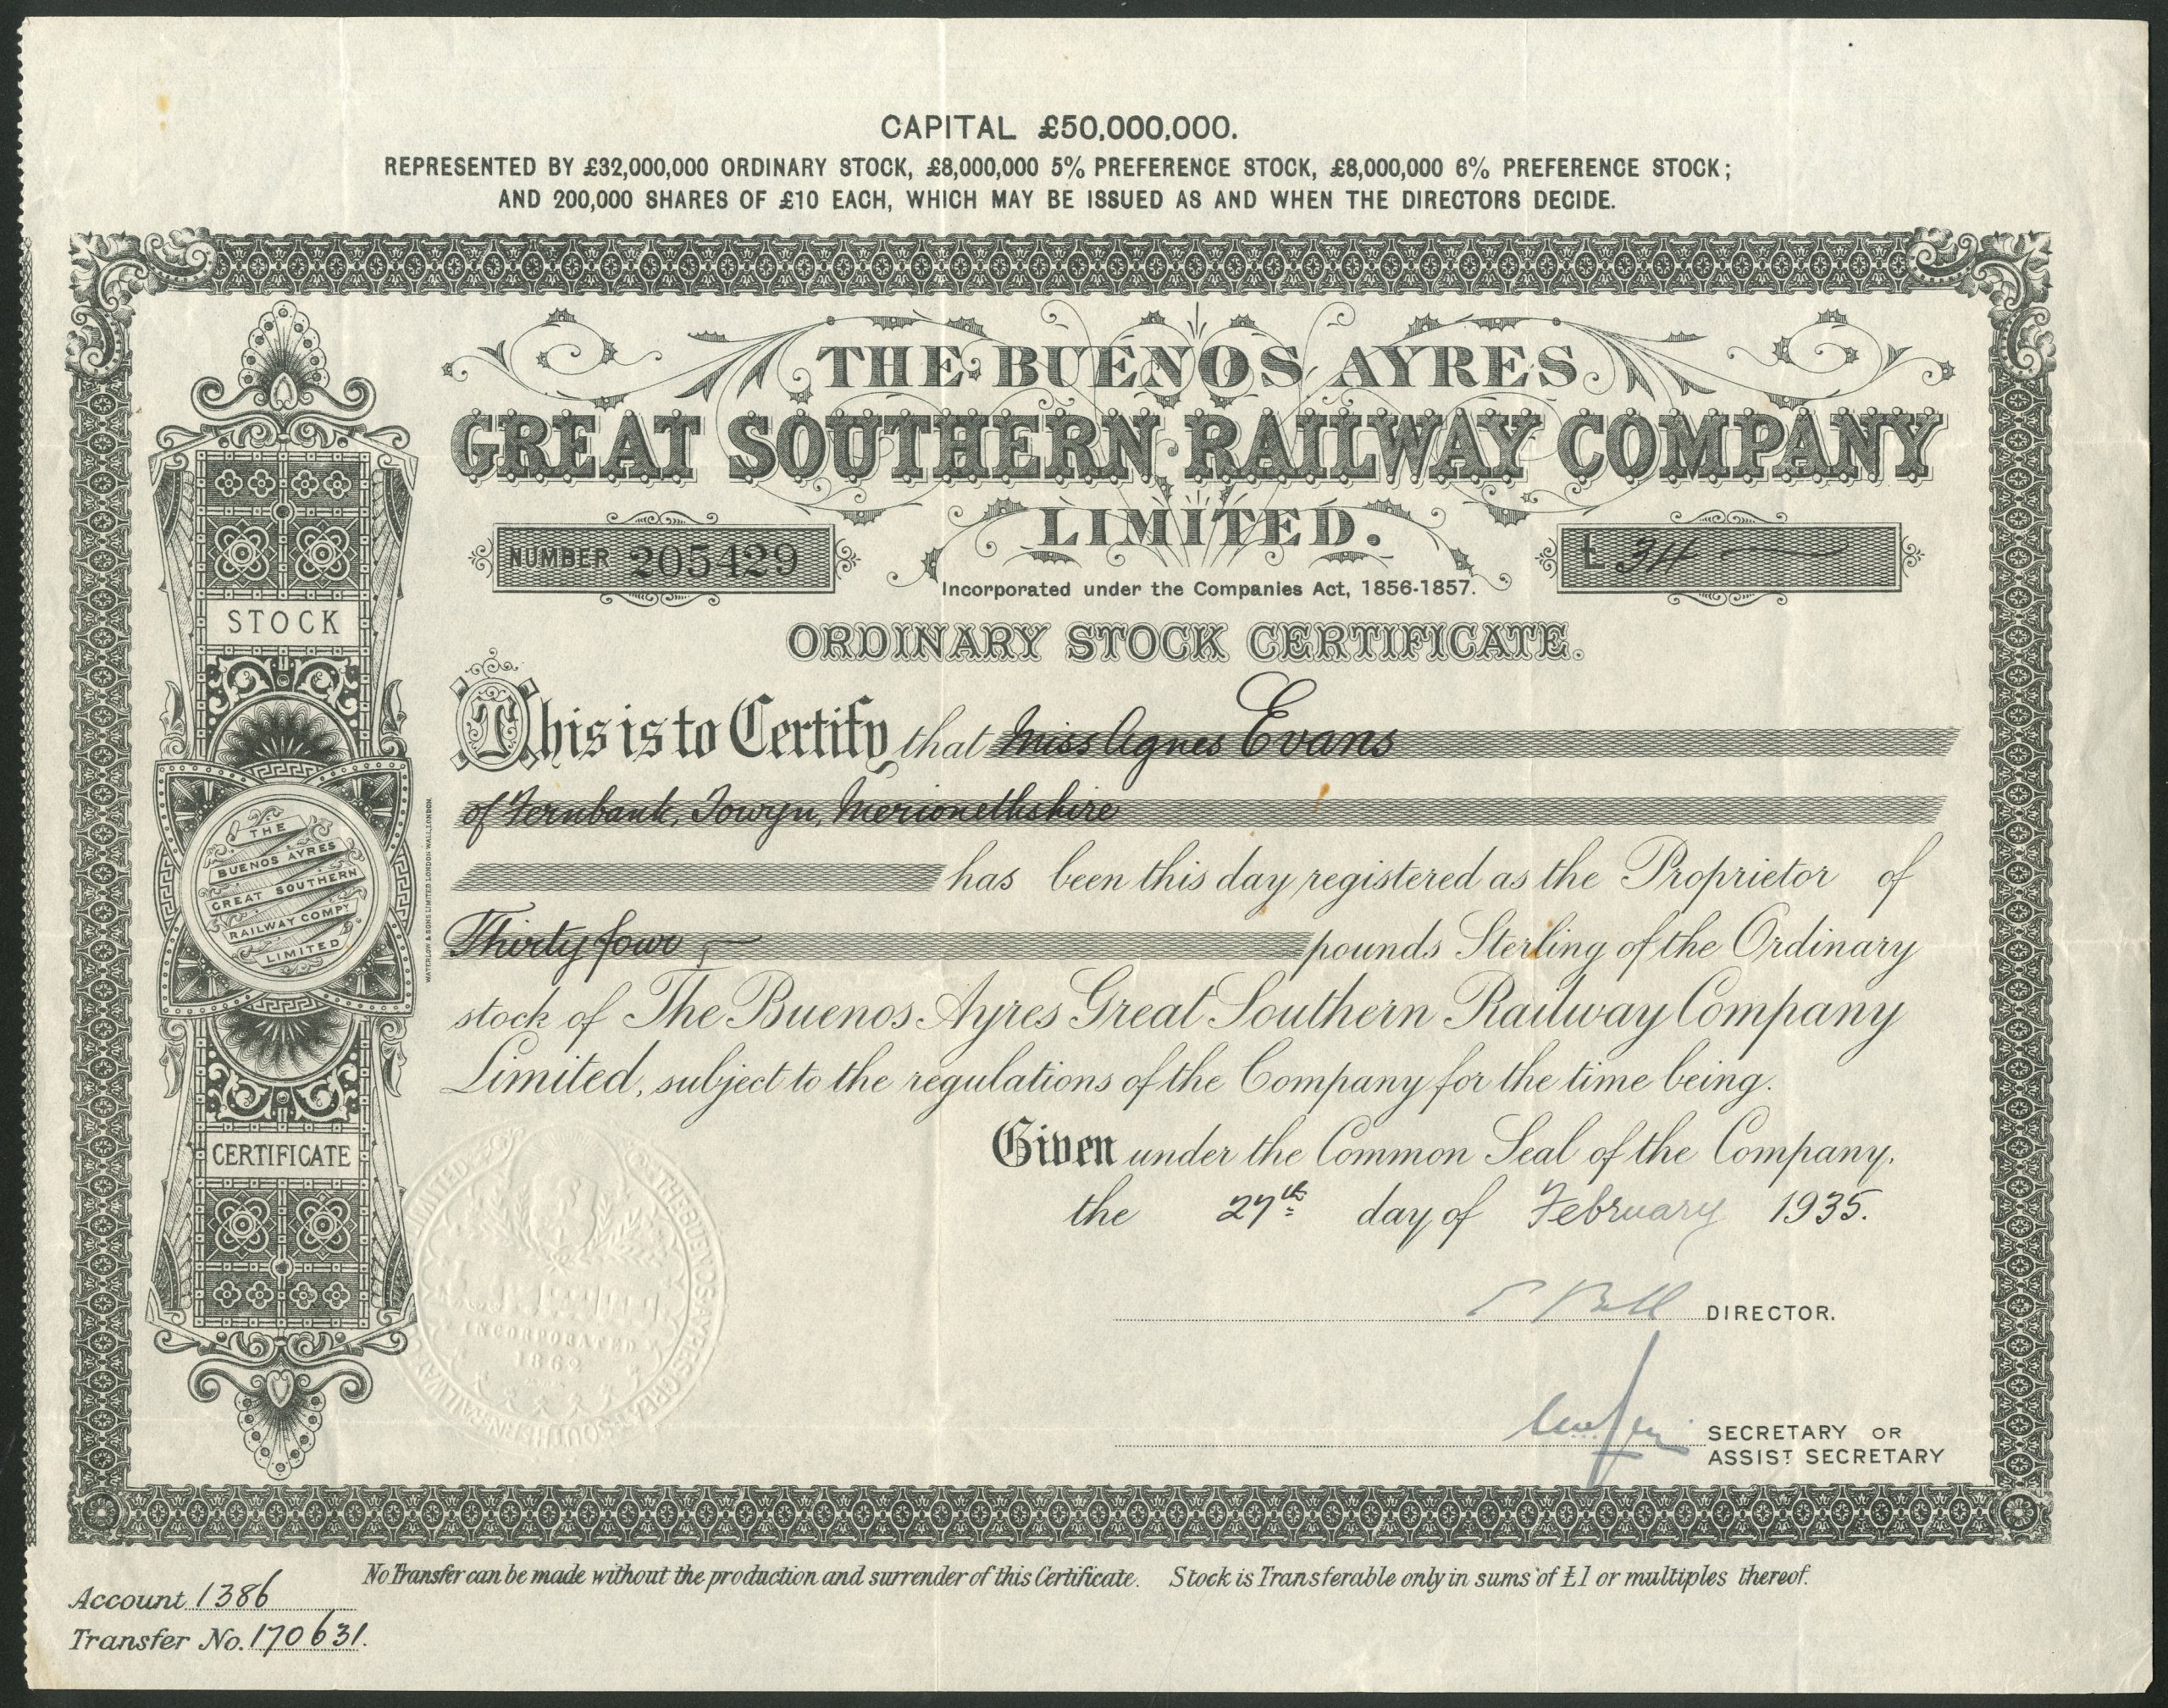 CAPITAL £50,000,000.
REPRESENTED BY £32,000,000 ORDINARY STOCK, £8,000,000 5% PREFERENCE STOCK, £8,000,000 6% PREFERENCE STOCK;
AND 200,000 SHARES OF £10 EACH, WHICH MAY BE ISSUED AS AND WHEN THE DIRECTORS DECIDE.
THE BUENOS AYRES
GREAT SOUTHERN RAILWAY COMPANY
LIMITED.
NUMBER 205429
£ 34
Incorporated under the Companies Act, 1856-1857.
ORDINARY STOCK CERTIFICATE.
This is to Certify that Miss Agnes Evans
of Fernbank, Towyn, Merionethshire
has been this day registered as the Proprietor of
Thirty four pounds Sterling of the Ordinary
stock of The Buenos Ayres Great Southern Railway Company
Limited, subject to the regulations of the Company for the time being.
Given under the Common Seal of the Company,
the 27th day of February 1935.
DIRECTOR.
SECRETARY OR
ASSIST SECRETARY
STOCK
THE
BUENOS AYRES
GREAT SOUTHERN
RAILWAY COMPY
LIMITED
CERTIFICATE
WATERLOW & SONS LIMITED LONDON WALL, LONDON.
THE BUENOS AYRES GREAT SOUTHERN RAILWAY LIMITED
INCORPORATED
1862
No Transfer can be made without the production and surrender of this Certificate. Stock is Transferable only in sums of £1 or multiples thereof.
Account 1386
Transfer No. 170631.